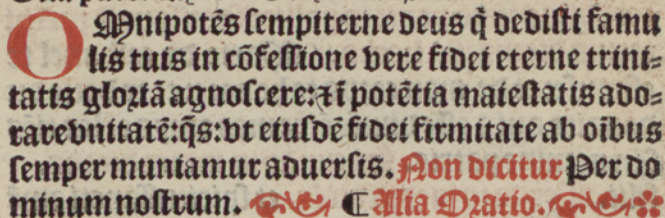 OMnipotẽs sempiterne deus q̃ dedisti famu
lis tuis in cõfessione vere fidei eterne trini⸗
tatis gloriã agnoscere: ⁊ ĩ potẽtia maiestatis ado⸗
rare vnitatẽ: q̃s: vt eiusdẽ fidei firmitate ab oĩbus
semper muniamur aduersis. Non dicitur Per do
minum nostrum. ¶ Alia Oratio.